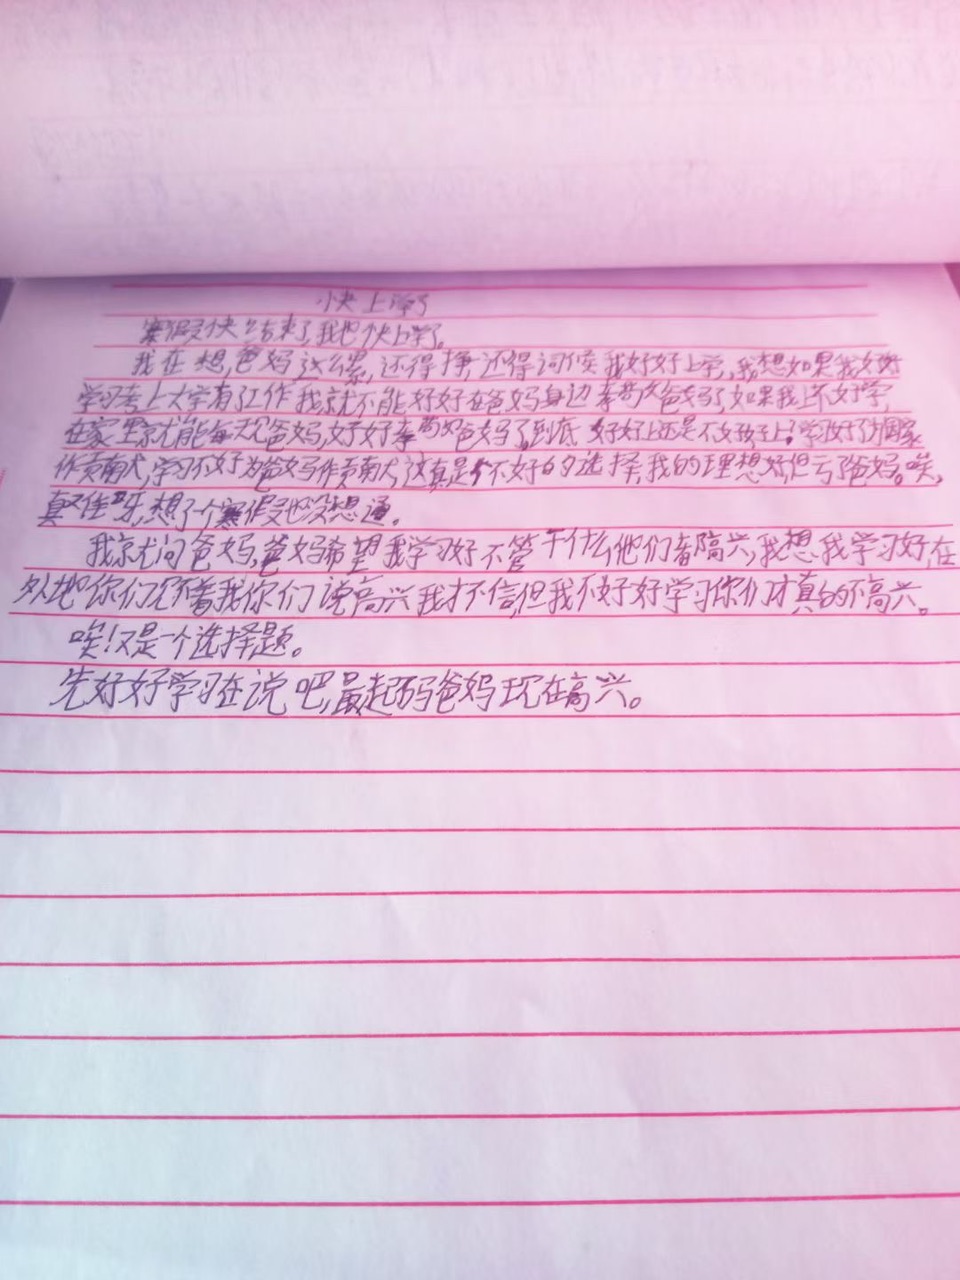 快上学了
寒假快结束了,我也快上学了。
我在想,爸妈这么累,还得挣还得伺候我好好上学,我想如果我好好
学习考上大学有了工作我就不能好好在爸妈身边孝敬爸妈了,如果我上不好学,
在家里就能每天见爸妈,好好孝敬爸妈了,到底好好上还是不好好上?学好了为国家
作贡献大,学习不好为爸妈作贡献大,这真是个不好的选择,我的理想好但亏爸妈。唉,
真难呀,想了个寒假也没想通。
我就问爸妈,爸妈希望我学习好不管干什么他们都高兴,我想我学习好,在
外地你们见不着我你们说高兴我才不信但我不好好学习你们才真的不高兴。
唉!又是一个选择题。
先好好学习在说吧,最起码爸妈现在高兴。